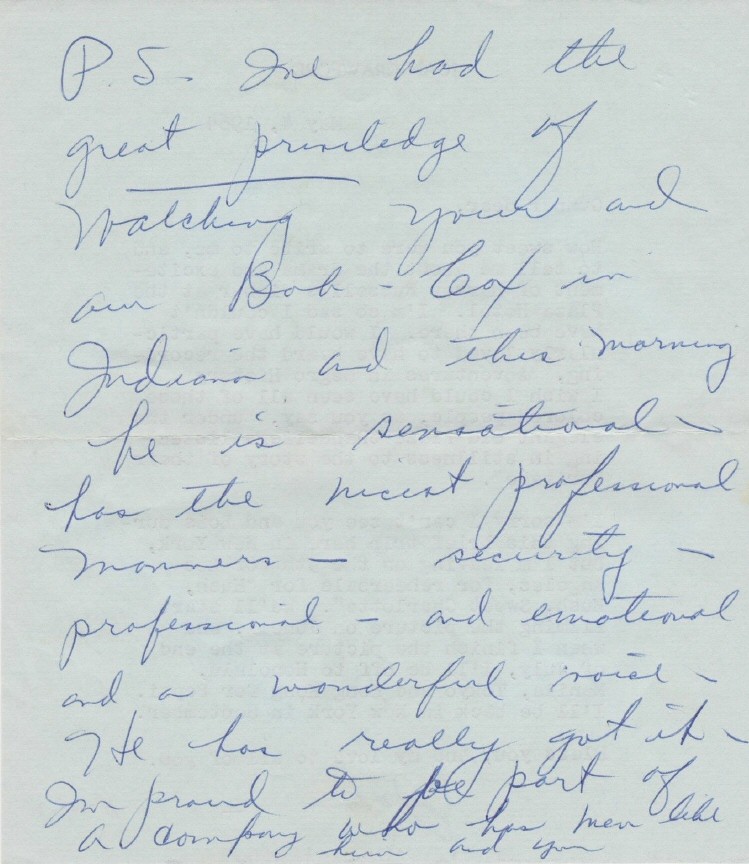 P S. Ive had the
great priviledge of
watching your and
our Bob - Cox in
Indiana and this morning
he is sensational -
has the nicest professional
manners - security -
professional - and emotional
and a wonderful voice -
He has really got it -
Im proud to be part of
a company who has men like
him and you